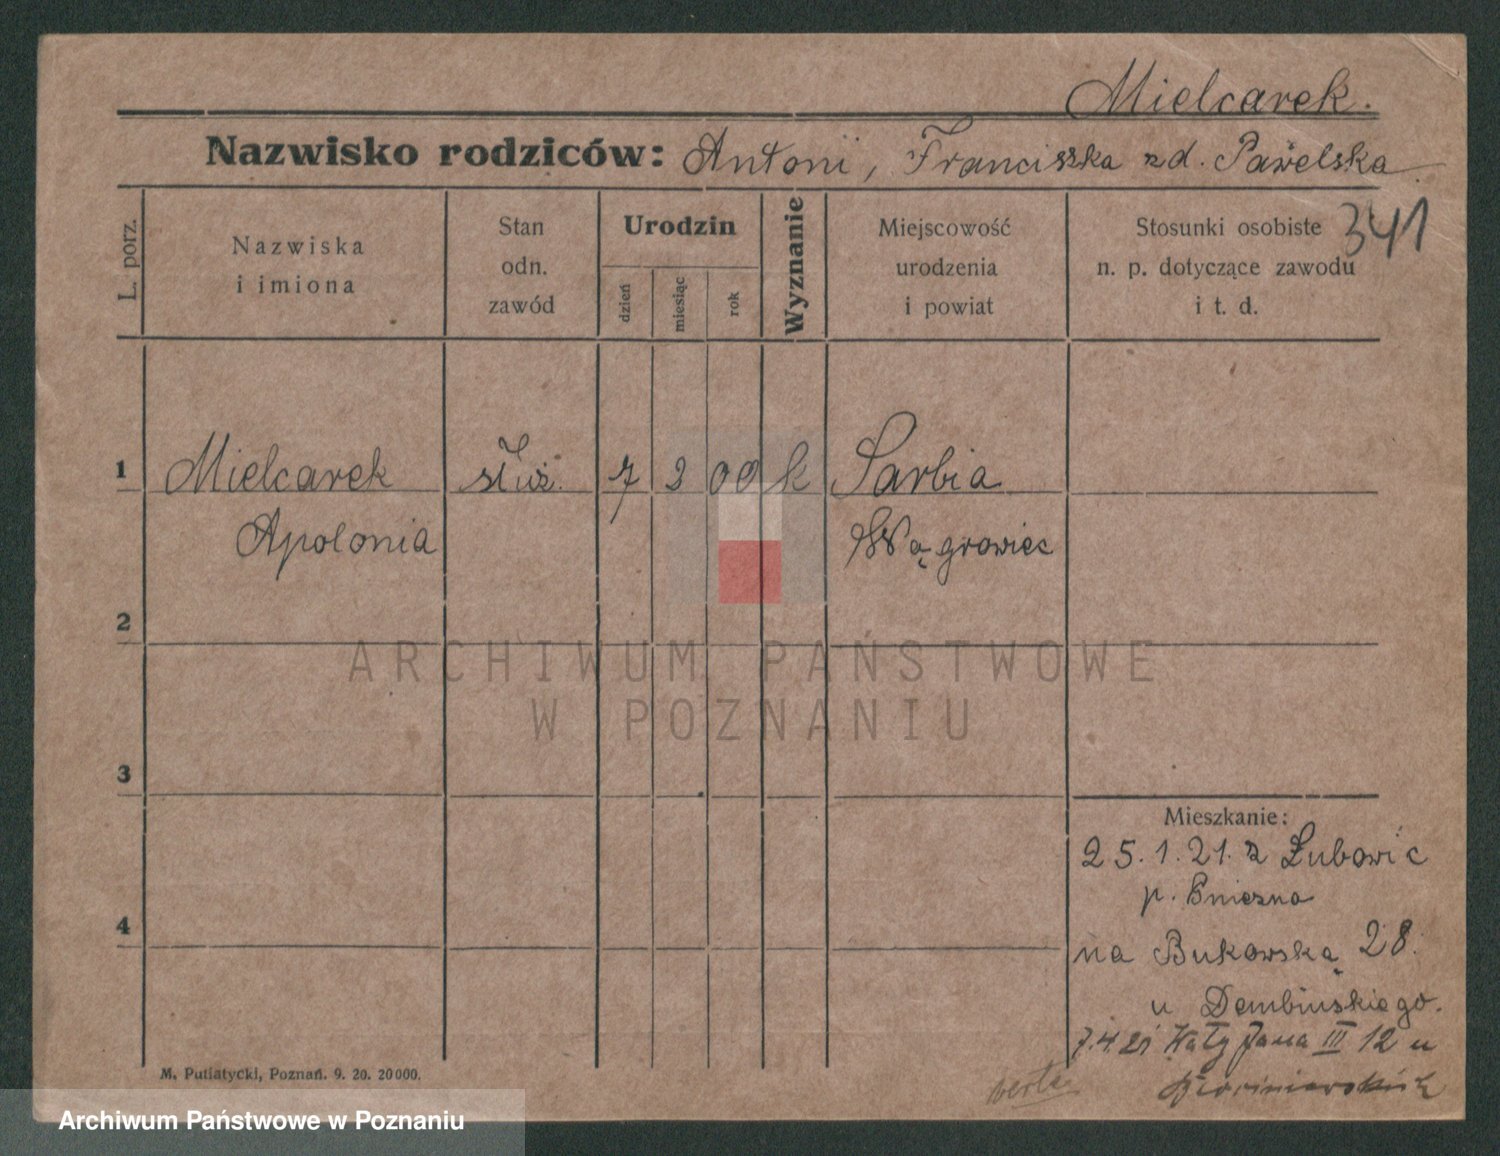 Mielcarek.
Nazwisko rodziców: Antoni, Franciszka zd. Pawelska
341
L. porz.
Nazwiska
i imiona
Stan
odn.
zawód
Urodzin
dzień
miesiąc
rok
Wyznanie
Miejscowość
urodzenia
i powiat
Stosunki osobiste
n. p. dotyczące zawodu
i t. d.
1 Mielcarek służ. 7 2 00 k Sarbia
Apolonia Wągrowiec
2
ARCHIWUM PAŃSTWOWE
W POZNANIU
3
Mieszkanie:
25.1.21. z Łubowic
p. Gniezno
4
na Bukowską 28.
u Dembińskiego.
7.4.21 Wały Jana III 12 u
M. Putiatycki, Poznań. 9. 20. 20000.
Archiwum Państwowe w Poznaniu